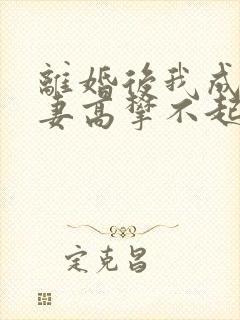 離婚後我成
妻高攀不起
定克昌